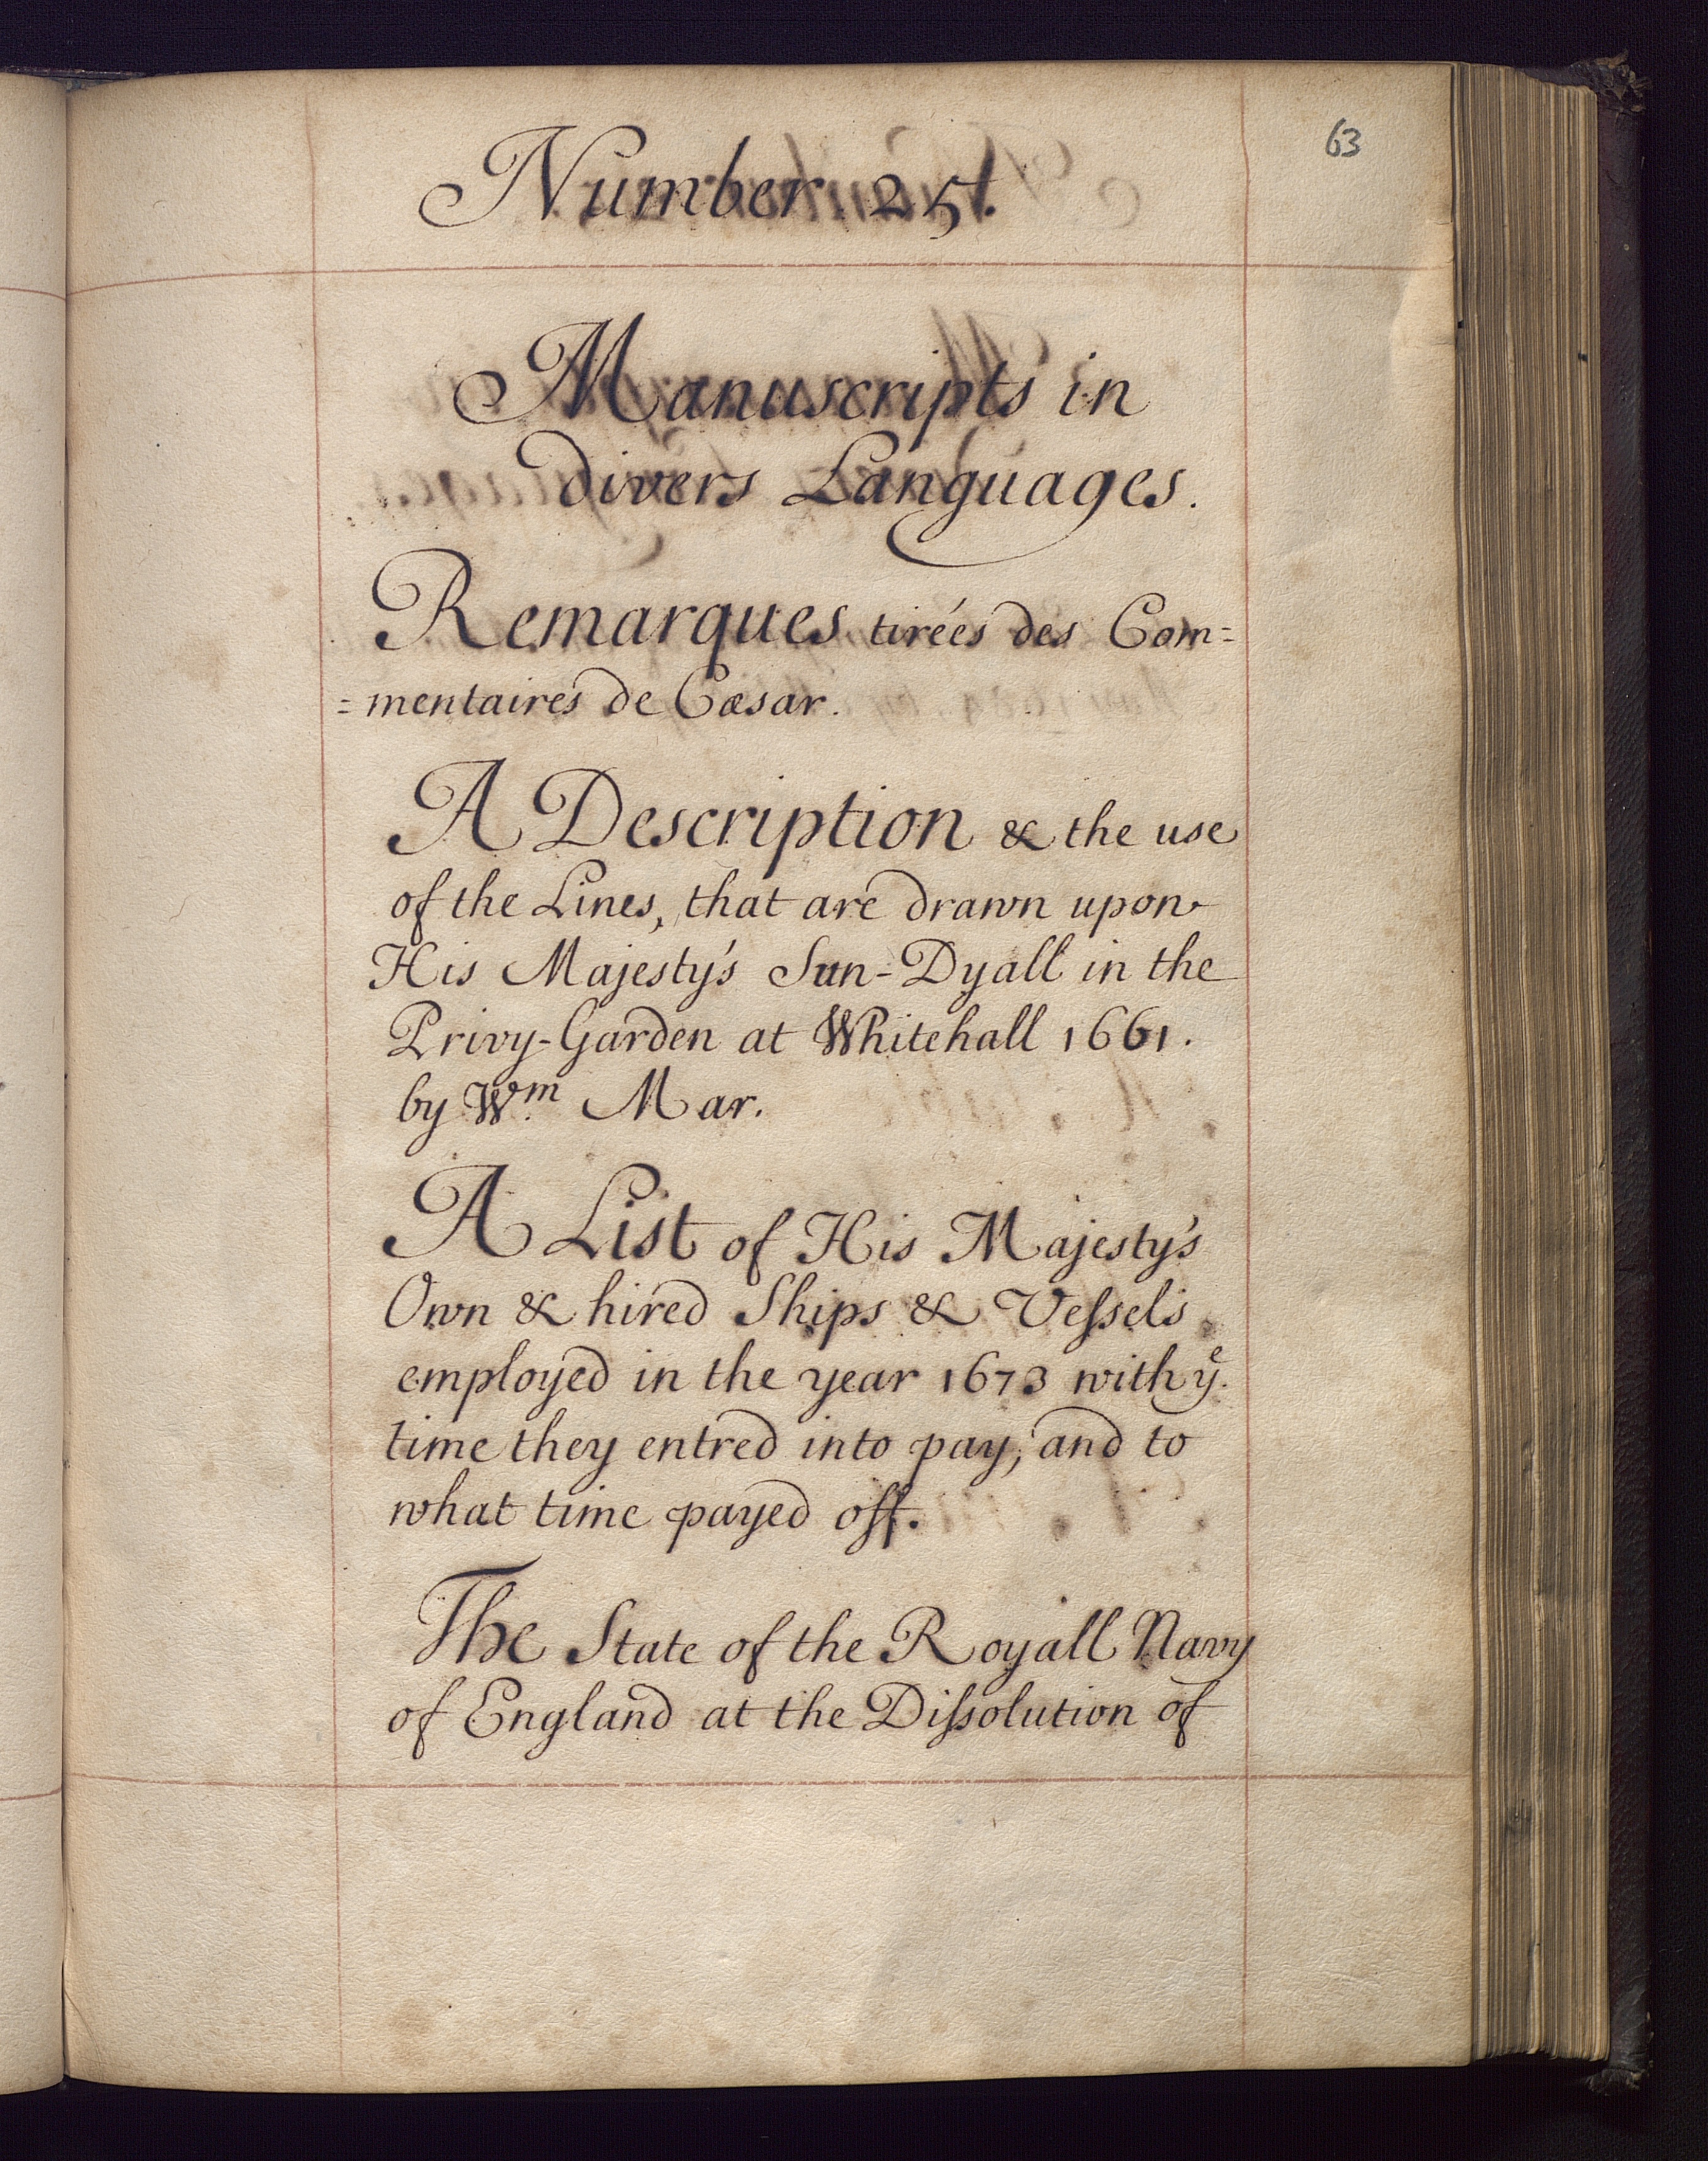 63
Number 25.
Manuscripts in
divers Languages.
Remarques tirées des Com=
=mentaires de Cæsar.
A Description & the use
of the Lines, that are drawn upon
His Majesty's Sun-Dyall in the
Privy-Garden at Whitehall 1661.
by Wm. Mar.
A List of His Majesty's
Own & hired Ships & Veſsels
employed in the year 1673 with ye.
time they entred into pay, and to
what time payed off.
The State of the Royall Navy
of England at the Diſsolution of